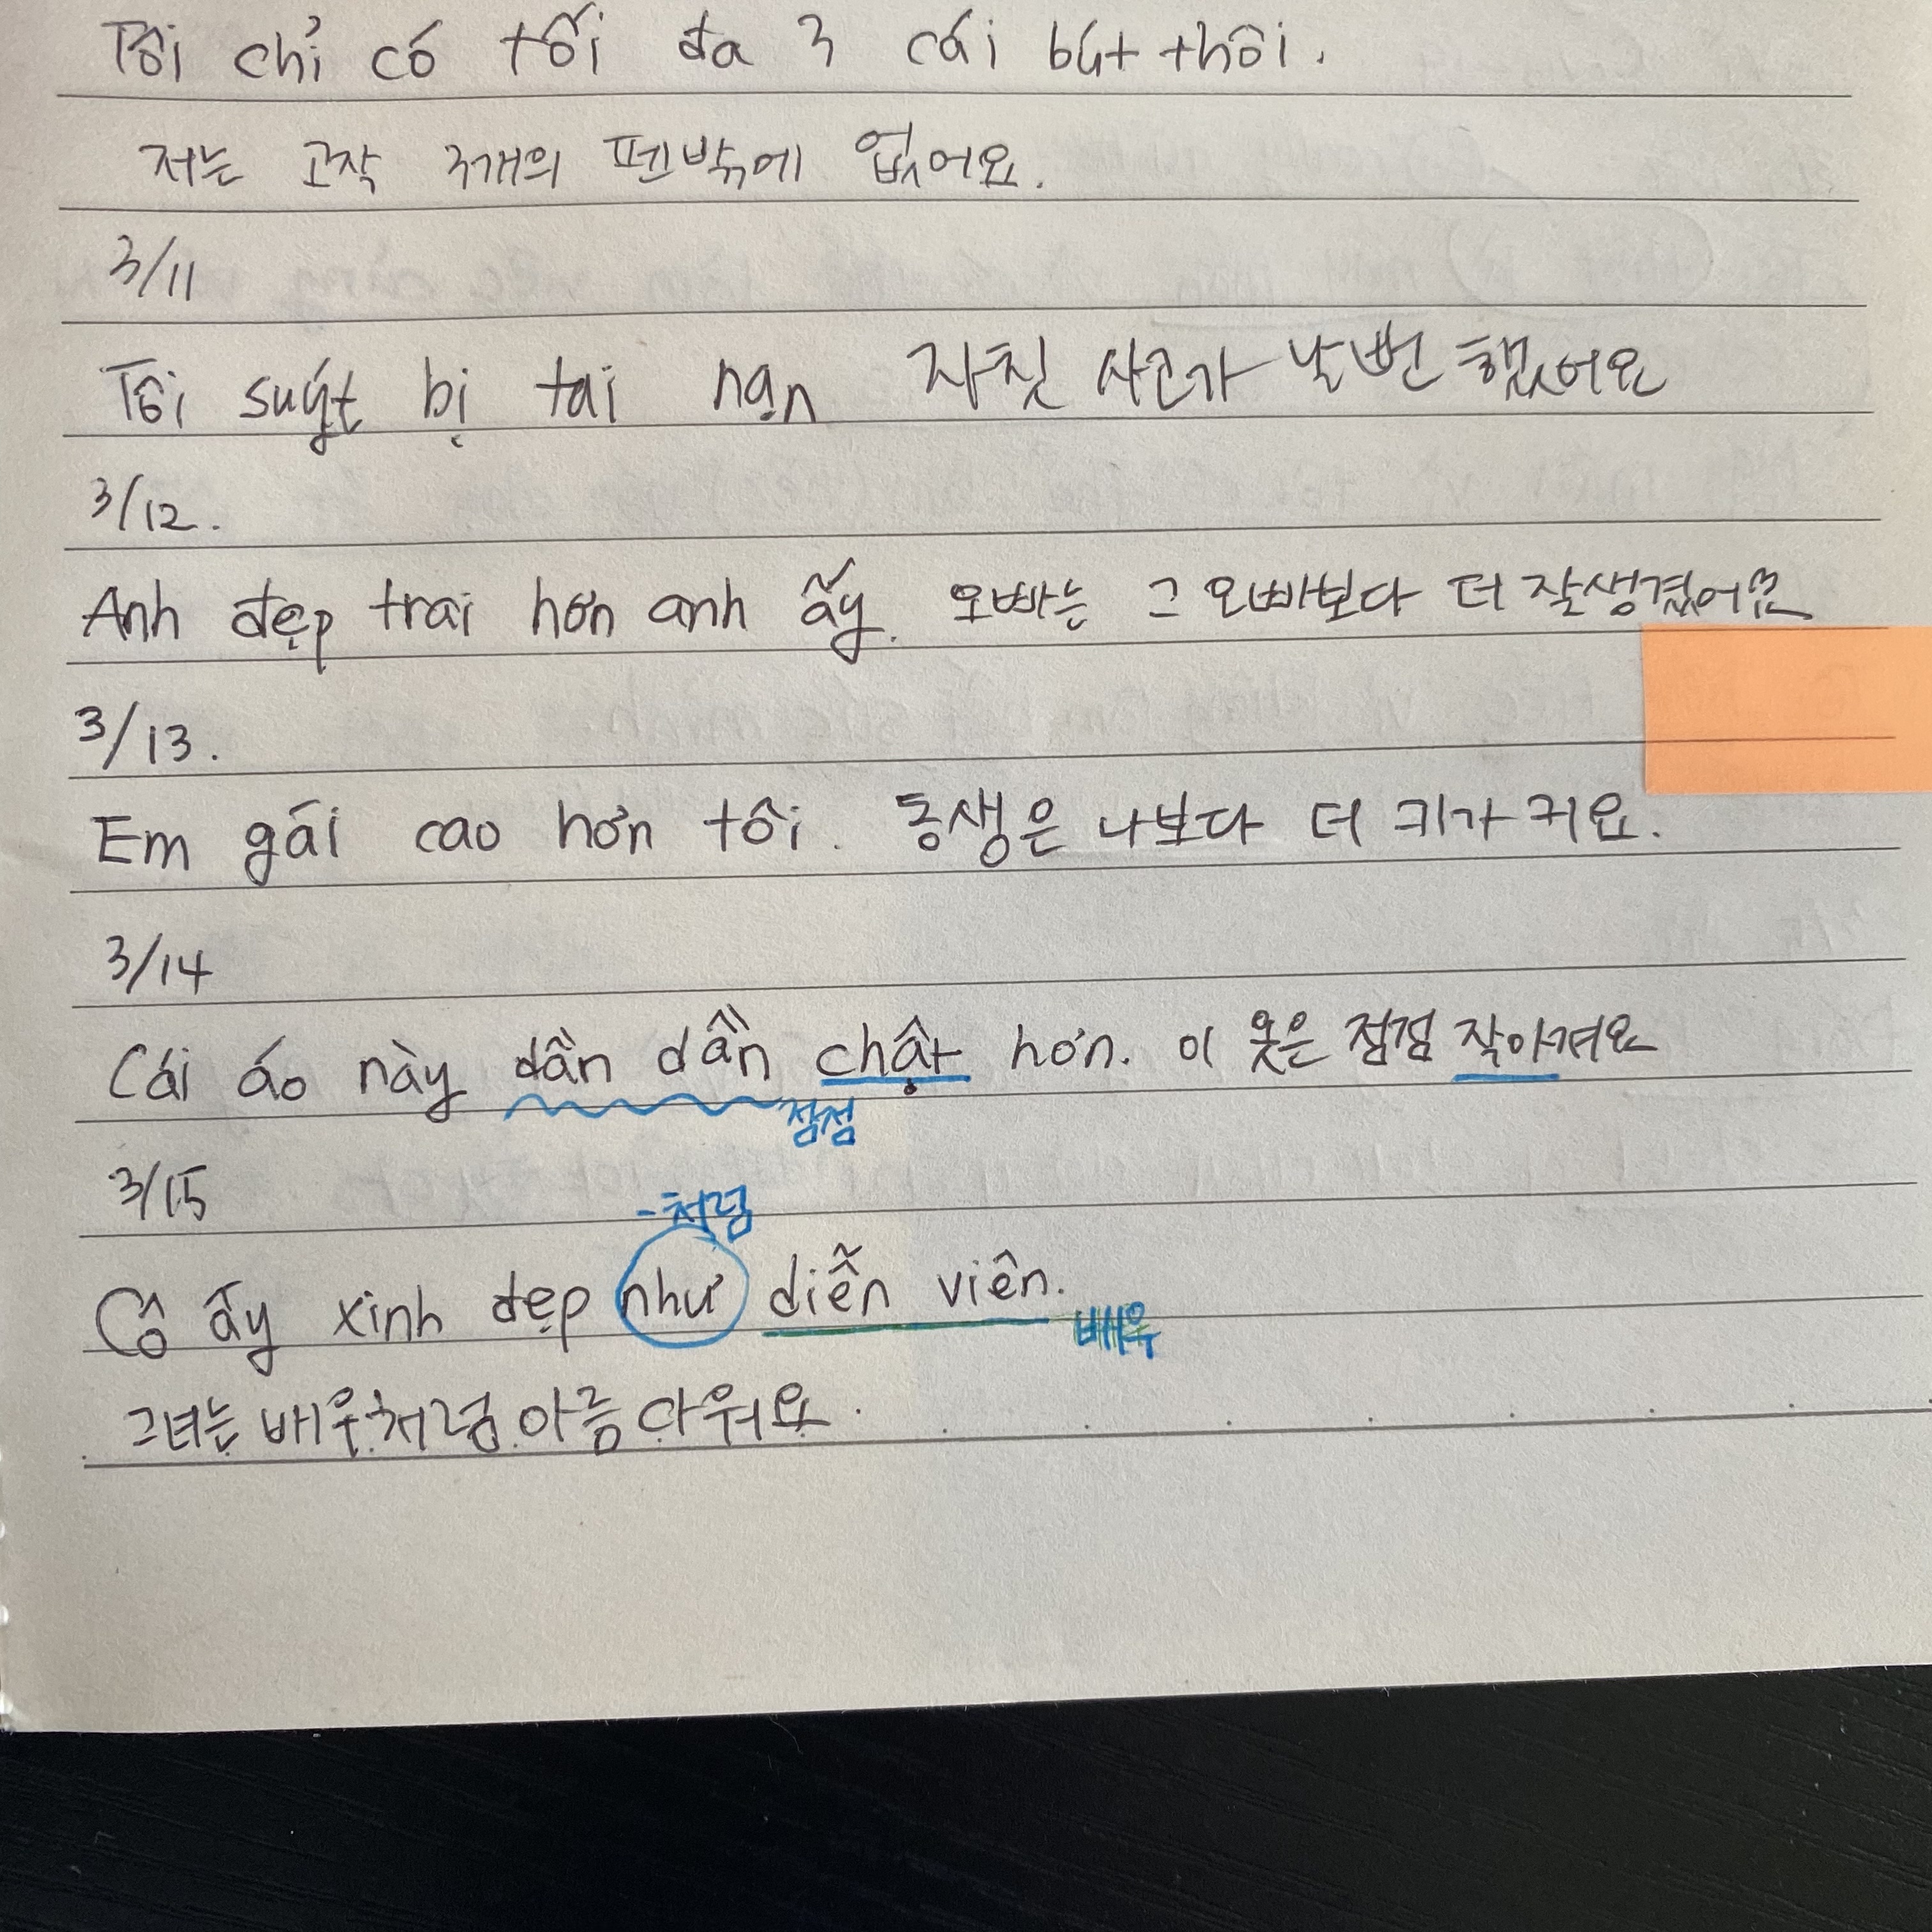 Tôi chỉ có tối đa 3 cái bút thôi.
저는 고작 3개의 펜밖에 없어요.
3/11
Tôi suýt bị tai nạn 자칫 사고가 날뻔 했어요
3/12.
Anh đẹp trai hơn anh ấy. 오빠는 그 오빠보다 더 잘생겼어요
3/13.
Em gái cao hơn tôi. 동생은 나보다 더 키가 커요.
3/14
Cái áo này dần dần chật hơn. 이 옷은 점점 작아져요
점점
3/15
-처럼
Cô ấy xinh đẹp như diễn viên.
배우
그녀는 배우처럼 아름다워요.